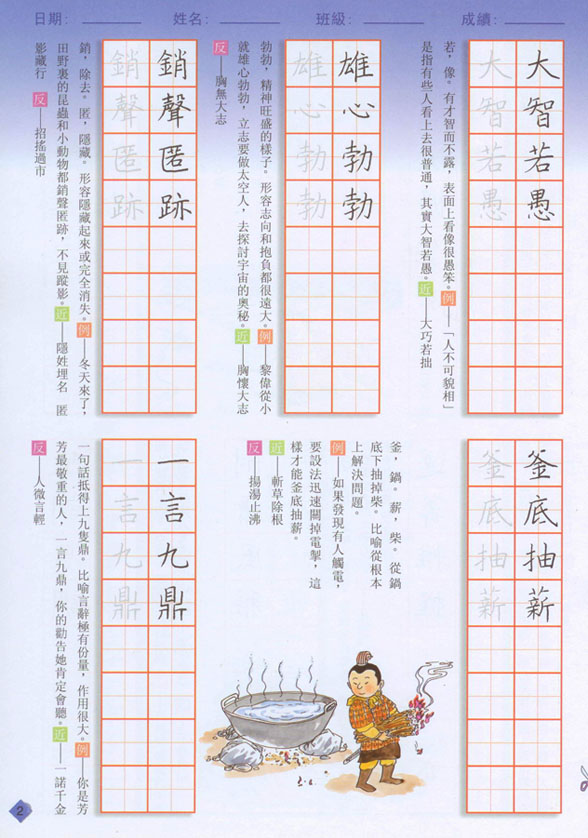 日期： 姓名： 班級： 成績：
大智若愚
大智若愚
若，像。有才智而不露，表面上看像很愚笨。例——「人不可貌相」
是指有些人看上去很普通，其實大智若愚。近——大巧若拙
雄心勃勃
雄心勃勃
勃勃，精神旺盛的樣子。形容志向和抱負都很遠大。例——黎偉從小
就雄心勃勃，立志要做太空人，去探討宇宙的奧秘。近——胸懷大志
反——胸無大志
銷聲匿跡
銷聲匿跡
銷，除去。匿，隱藏。形容隱藏起來或完全消失。例——冬天來了，
田野裏的昆蟲和小動物都銷聲匿跡，不見蹤影。近——隱姓埋名　匿
影藏行　反——招搖過市
釜底抽薪
釜底抽薪
釜，鍋。薪，柴。從鍋
底下抽掉柴。比喻從根本
上解決問題。
例——如果發現有人觸電，
要設法迅速關掉電掣，這
樣才能釜底抽薪。
近——斬草除根
反——揚湯止沸
一言九鼎
一言九鼎
一句話抵得上九隻鼎。比喻言辭極有份量，作用很大。例——你是芳
芳最敬重的人，一言九鼎，你的勸告她肯定會聽。近——一諾千金
反——人微言輕
2